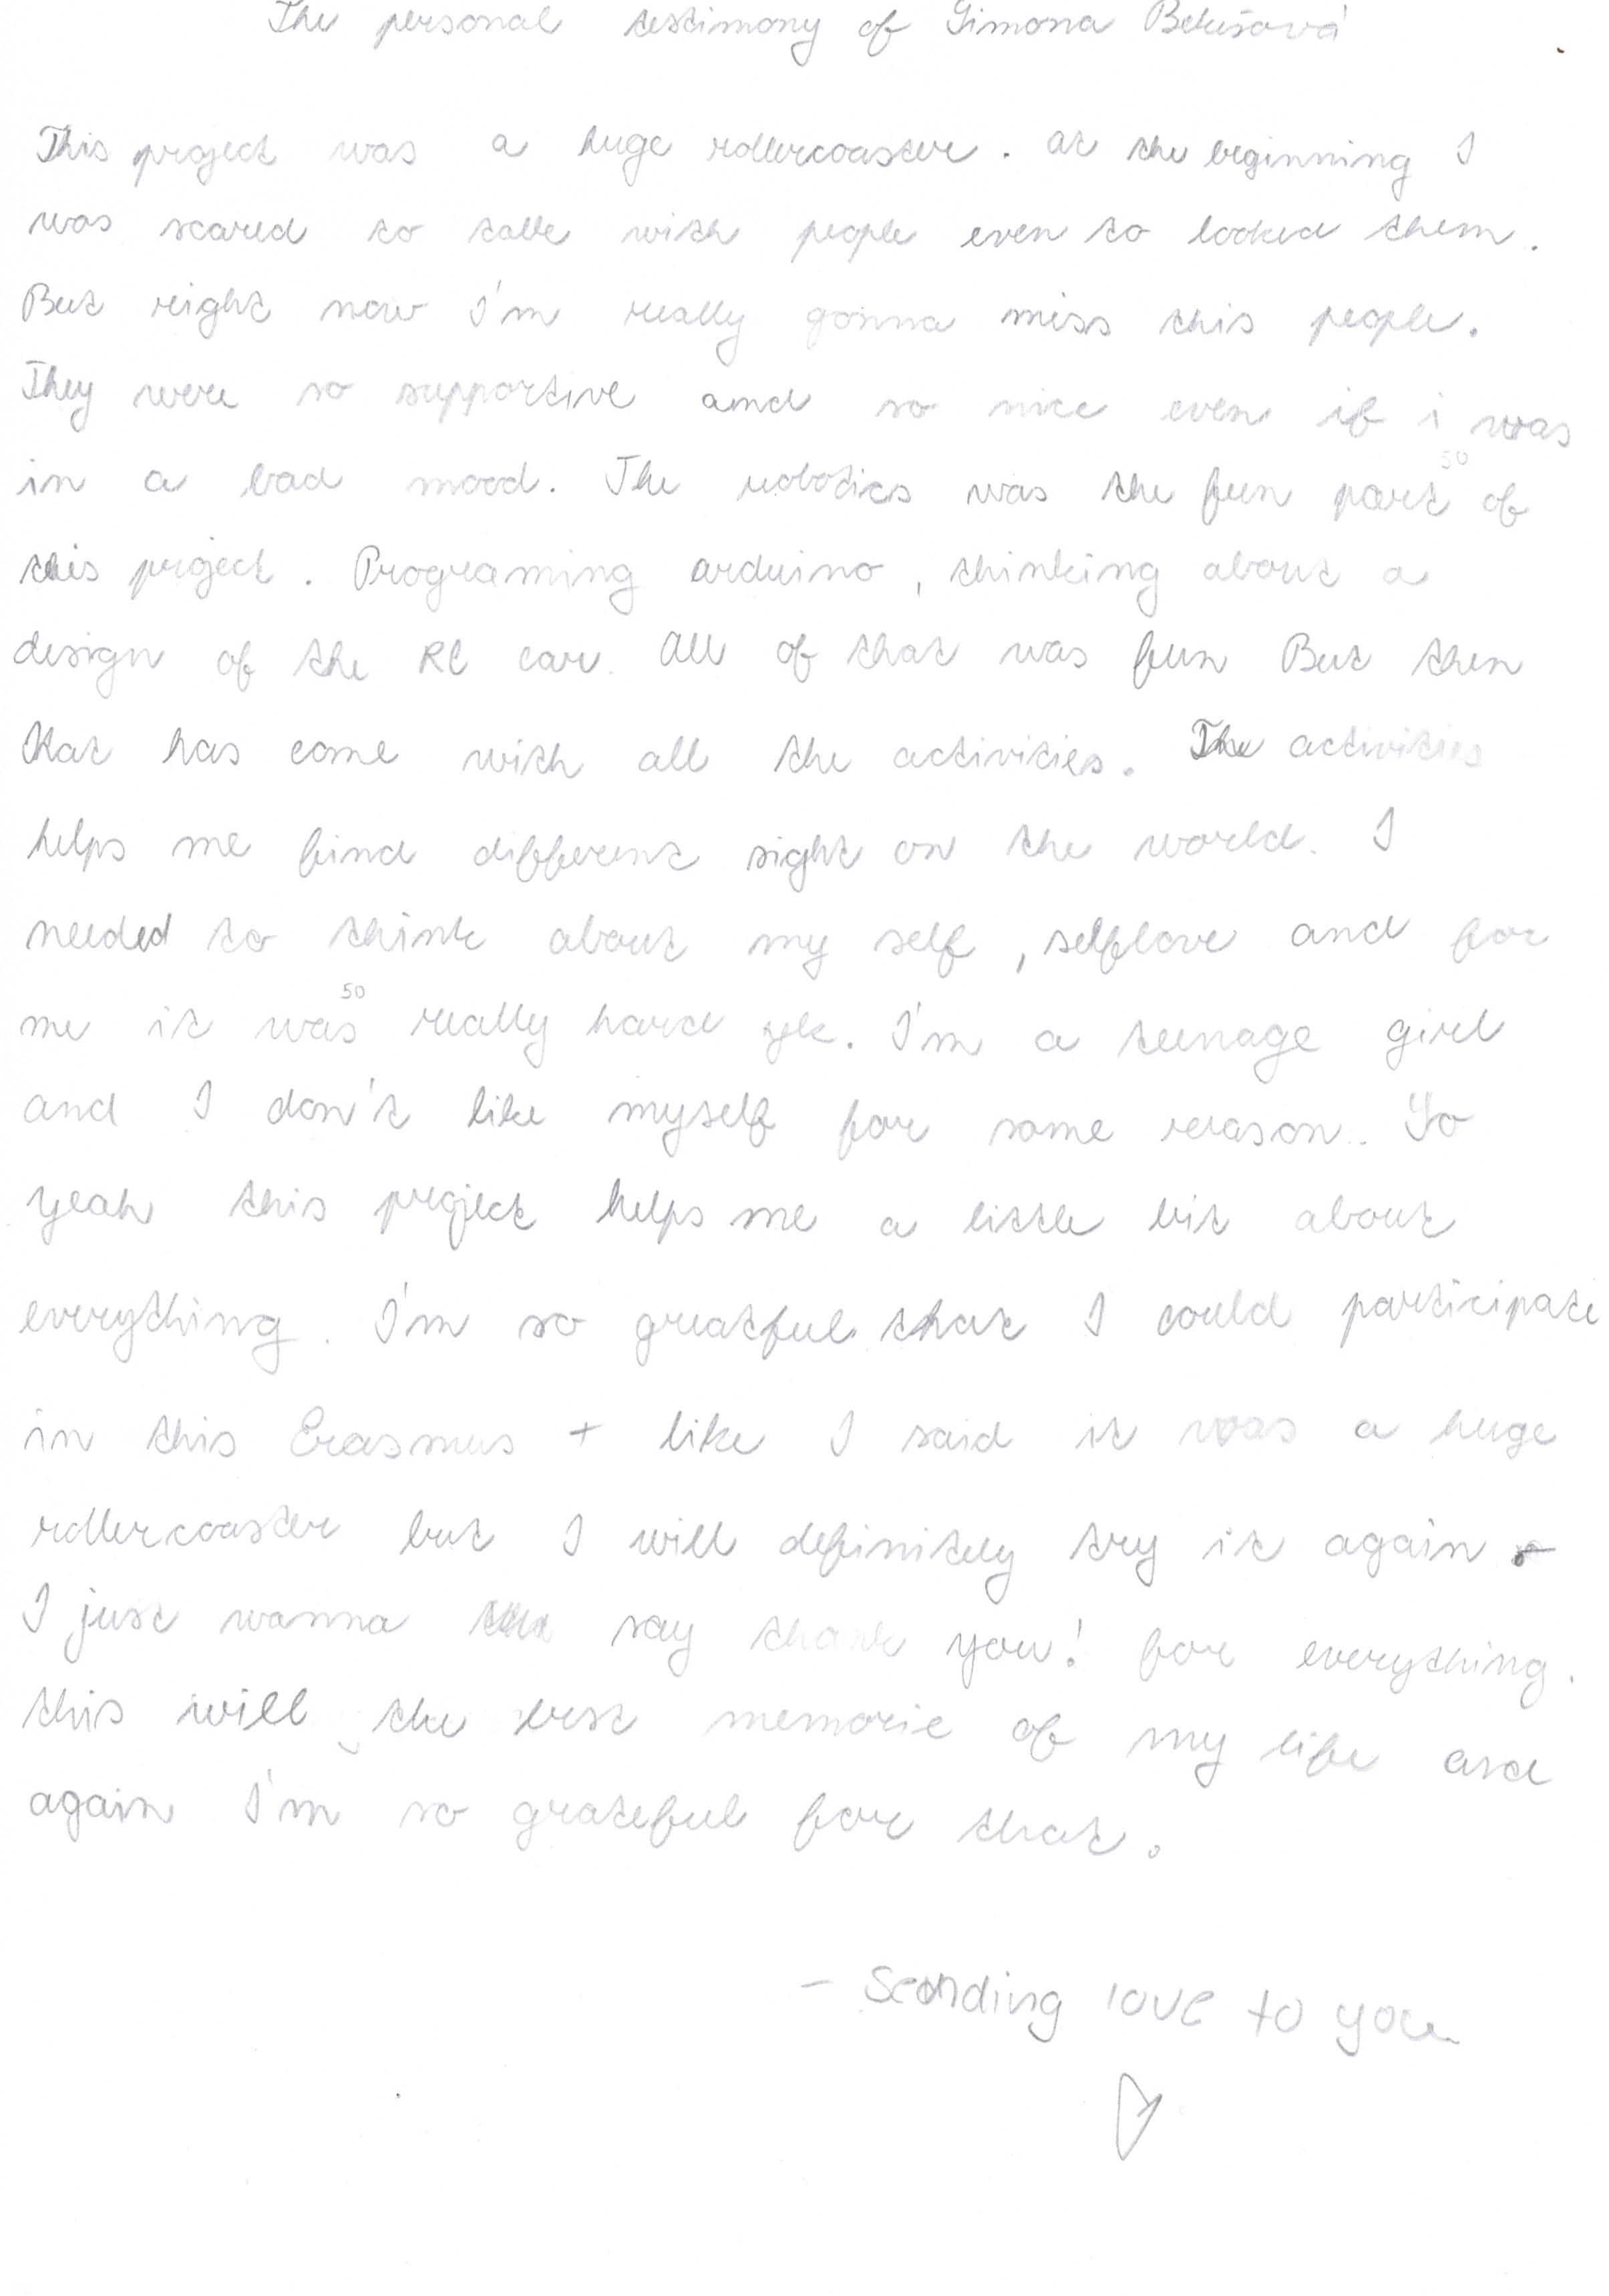 The personal testimony of Simona Bekešová
This project was a huge rollercoaster. At the beginning I
was scared to talk with people even to looked them.
But right now I'm really gonna miss this people.
They were so supportive and so nice even if i was
in a bad mood. The robotics was the fun part of
50
this project. Programing arduino, thinking about a
design of the RC car. All of that was fun But then
that has come with all the activities. The activities
helps me find different sight on the world. I
needed to think about my self, selflove and for
me it was really hard . I'm a teenage girl
50
and I don't like myself for some reason.. So
yeah this project helps me a little bit about
everything. I'm so greatful that I could participate
in this Erasmus + like I said it was a huge
rollercoaster but I will definitely try it again.
I just wanna say thank you! for everything.
this will the best memorie of my life and
again I'm so grateful for that.
- Sending love to you